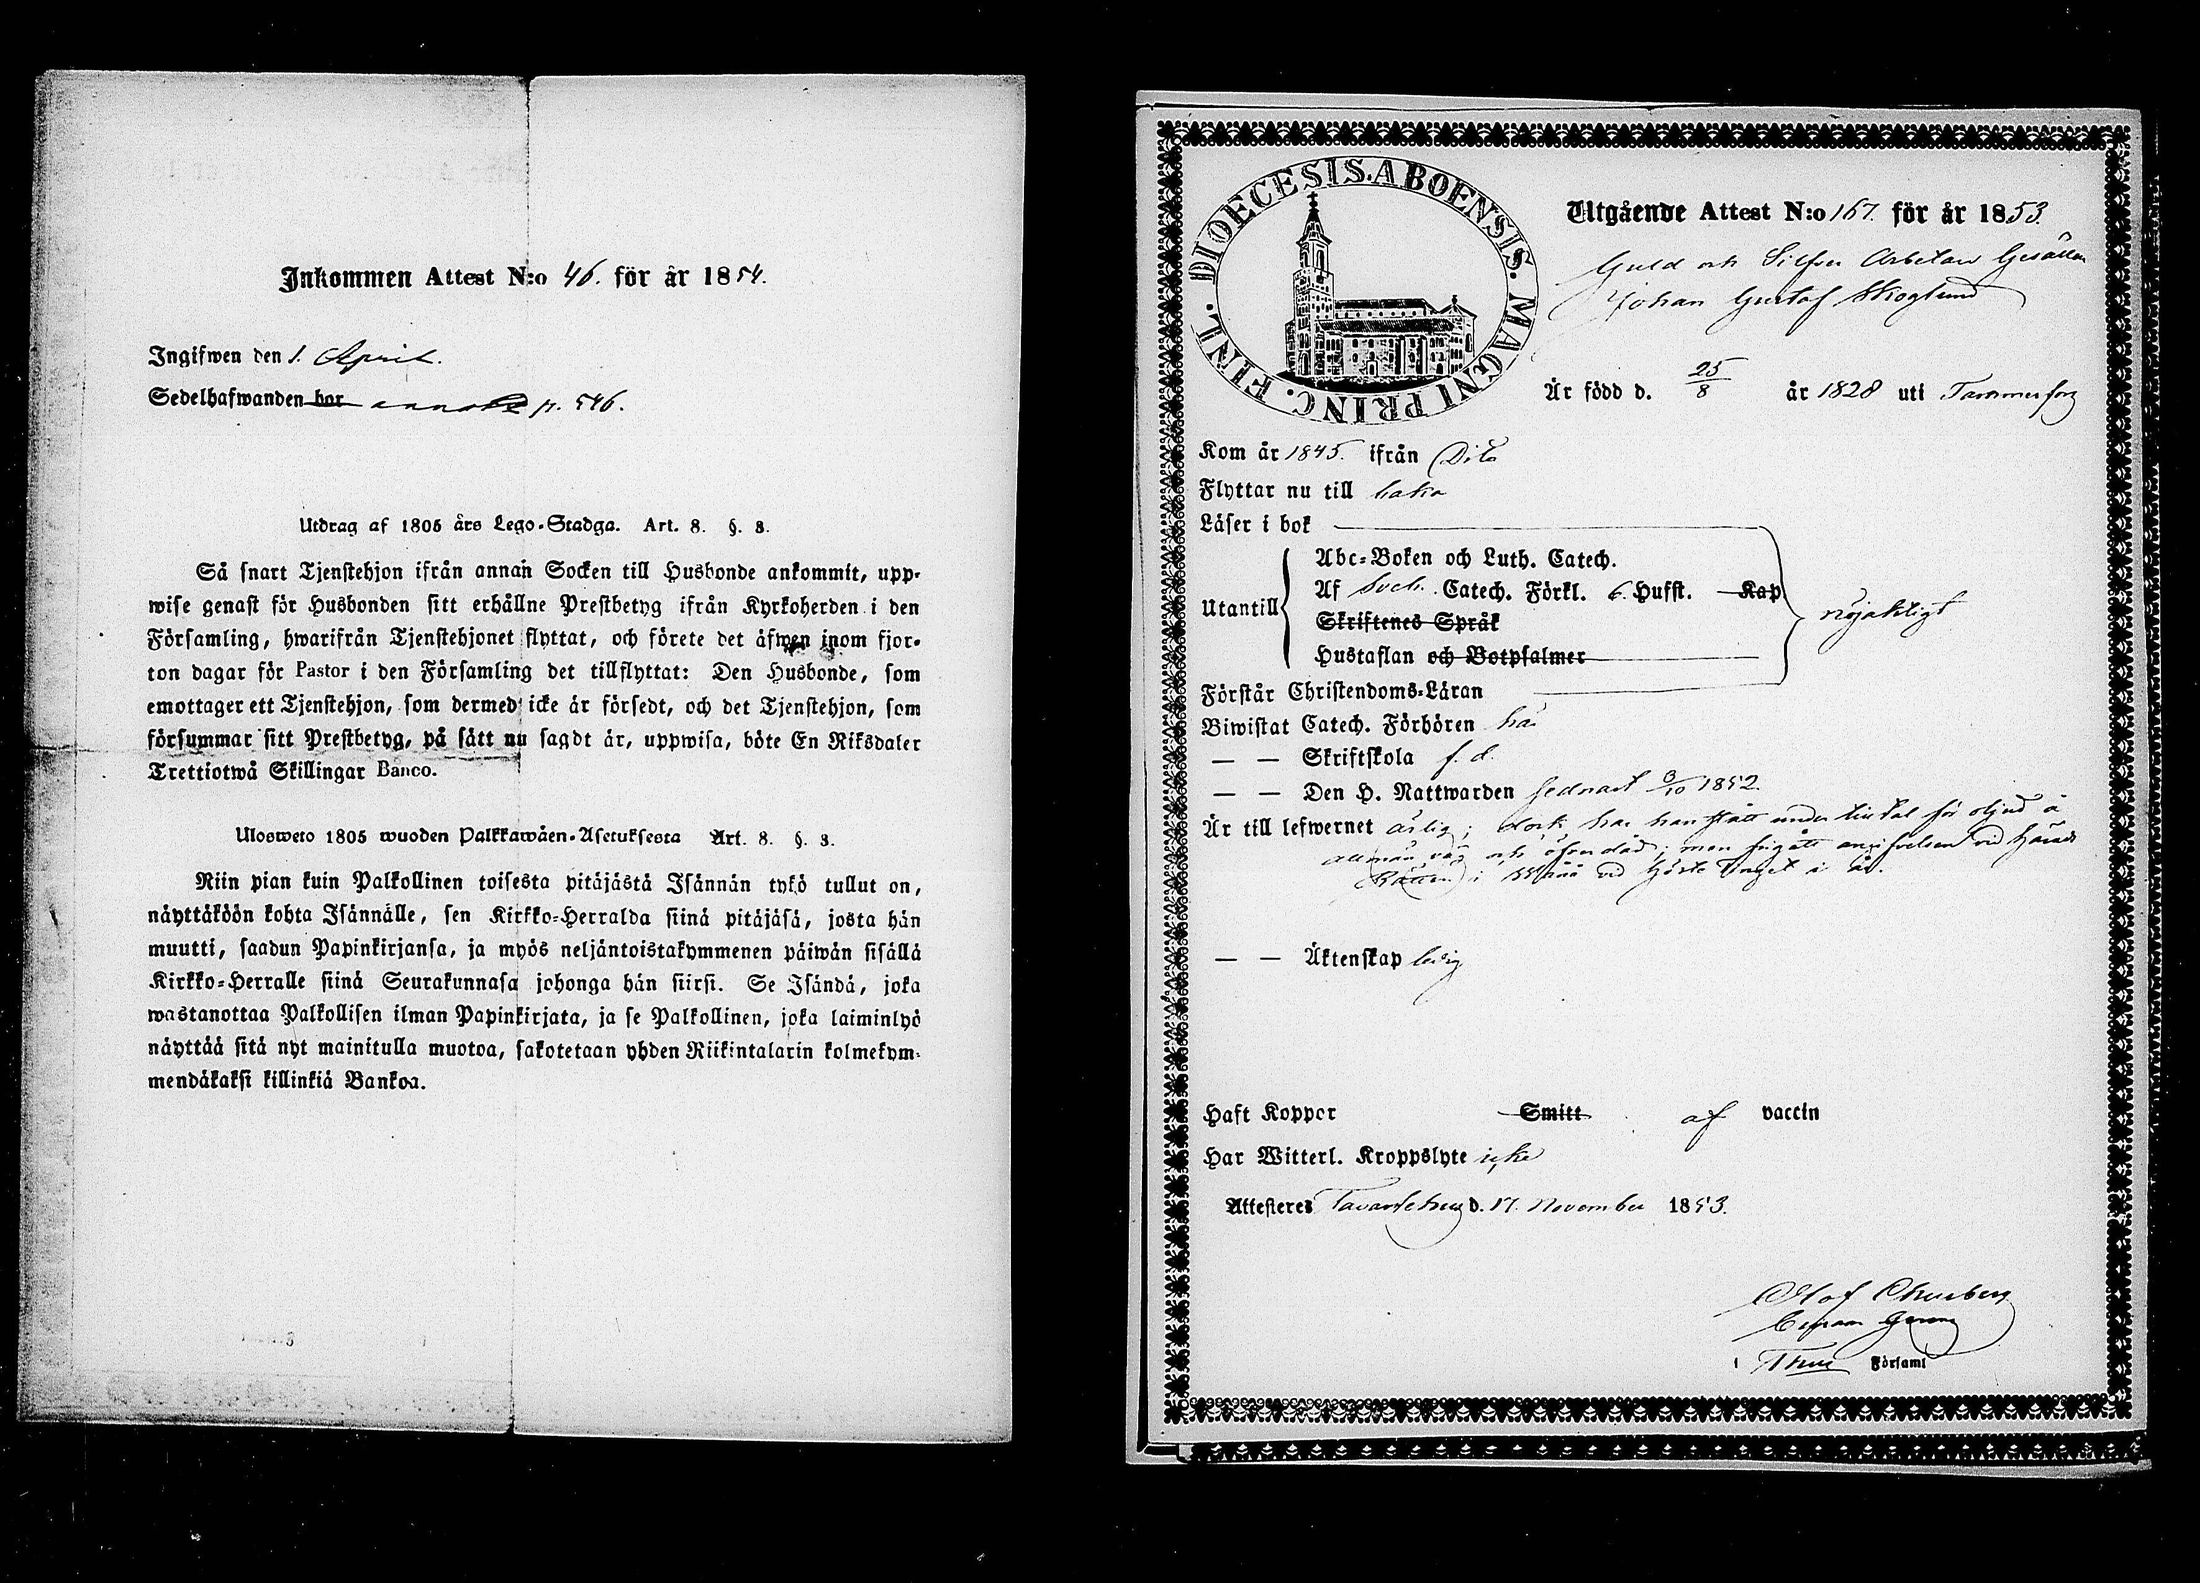 Inkommen Attest N:o 46. för år 1854.
Ingifwen den 1. April.
Sedelhafwanden bor p. 546.
Utdrag af 1805 års Lego-Stadga. Art. 8. §. 3.
Så snart Tjenstehjon ifrån annan Socken till Husbonde ankommit, upp-
wise genast för Husbonden sitt erhållne Prestbetyg ifrån Kyrkoherden i den
Församling, hwarifrån Tjenstehjonet flyttat, och förete det äfwen inom fjor-
ton dagar för Pastor i den Församling det tillflyttat: Den Husbonde, som
emottager ett Tjenstehjon, som dermed icke är försedt, och det Tjenstehjon, som
försummar sitt Prestbetyg, på sätt nu sagdt är, uppwisa, böte En Riksdaler
Trettiotwå Skillingar Banco.
Ulosweto 1805 wuoden Palkkawäen-Asetuksesta Art. 8. §. 3.
Niin pian kuin Palkollinen toisesta pitäjästä Isännän tykö tullut on,
näyttäköön kohta Isännälle, sen Kirkko-Herralda siinä pitäjäsä, josta hän
muutti, saadun Papinkirjansa, ja myös neljäntoistakymmenen päiwän sisällä
Kirkko-Herralle siinä Seurakunnasa johonga hän siirsi. Se Isändä, joka
wastanottaa Palkollisen ilman Papinkirjata, ja se Palkollinen, joka laiminlyö
näyttää sitä nyt mainitulla muotoa, sakotetaan yhden Riikintalarin kolmekym-
mendäkaksi killinkiä Bankoa.
DIOECESIS. ABOENSIS. MAGNI PRINC. FINL.
Utgående Attest N:o 167. för år 1853.
Guld och Silfver Arbetare Gesällen
Johan Gustaf Skoglund
Är född d. 25/8 år 1828 uti Tammerfors
Kom år 1845. ifrån Dito
Flyttar nu till
Läser i bok
Utantill
Abc-Boken och Luth. Catech.
Af Sveb. Catech. Förkl. 6. Hufst. Kap
Skriftenes Språk
Hustaflan och Botpsalmer
nöjaktigt
Förstår Christendoms-Läran
Biwistat Catech. Förhören här
— — Skriftskola f. d.
— — Den H. Nattwarden sednast 3/10 1852.
Är till lefwernet ärlig; dock har han stått under tiltal för oljud å
allmän väg och öfverdåd; men frigått angifvelsen vid Härads
Rätten i vid Höste Tinget i år.
— — Äktenskap ledig
Haft Koppor Smitt af vaccin
Har Witterl. Kroppslyte icke
Attesteres Tavastehus d. 17. November 1853.
Olof Churberg
i Thus Församl